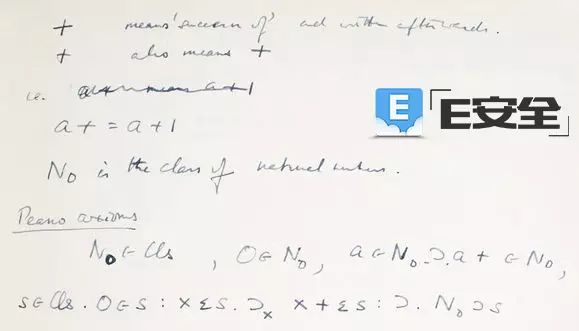 + means 'successor of' and written afterwards.
+ also means +
i.e. a+ means a+1
a+ = a+1
E「E安全」
N₀ is the class of natural numbers.
Peano axioms
N₀ ∈ Cls , 0 ∈ N₀ , a ∈ N₀ .⊃. a+ ∈ N₀ ,
s ∈ Cls . 0 ∈ s : x ε s . ⊃ₓ x + ε s : ⊃ . N₀ ⊃ s